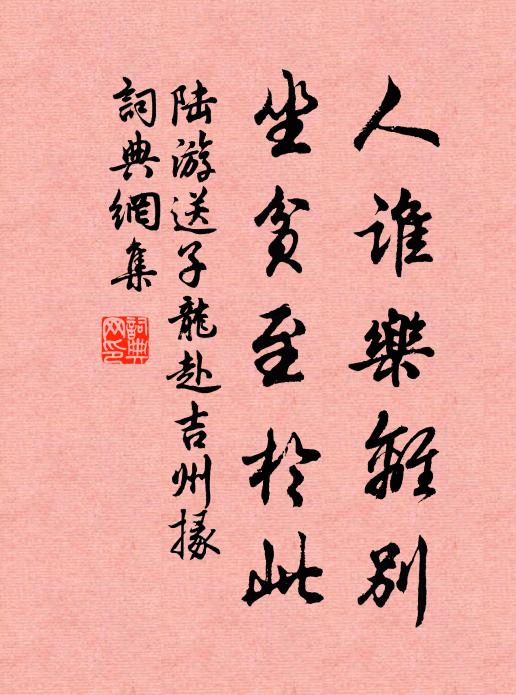 人誰樂離別
坐貧至於此
陆游送子龍赴吉州掾
詞典網集
詞典网印